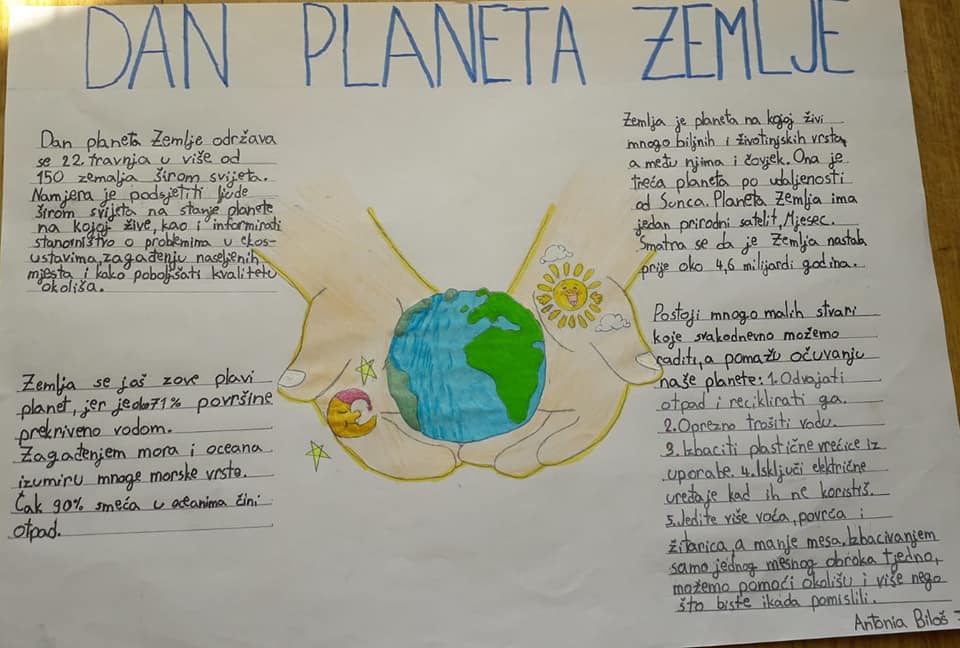 DAN PLANETA ZEMLJE
Dan planeta Zemlje održava
se 22. travnja u više od
150 zemalja širom svijeta.
Namjera je podsjetiti ljude
širom svijeta na stanje planete
na kojoj žive, kao i informirati
stanovništvo o problemima u ekos-
ustavima, zagađenju naseljenih
mjesta i kako poboljšati kvalitetu
okoliša.
Zemlja se još zove plavi
planet, jer je oko 71% površine
prekriveno vodom.
Zagađenjem mora i oceana
izumiru mnoge morske vrste.
Čak 90% smeća u oceanima čini
otpad.
Zemlja je planeta na kojoj živi
mnogo biljnih i životinjskih vrsta,
a među njima i čovjek. Ona je
treća planeta po udaljenosti
od Sunca. Planeta Zemlja ima
jedan prirodni satelit, Mjesec.
Smatra se da je Zemlja nastala
prije oko 4,6 milijardi godina.
Postoji mnogo malih stvari
koje svakodnevno možemo
raditi, a pomažu očuvanju
naše planete: 1. Odvajati
otpad i reciklirati ga.
2. Oprezno trošiti vodu.
3. Izbaciti plastične vrećice iz
uporabe. 4. Isključi električne
uređaje kad ih ne koristiš.
5. Jedite više voća, povrća i
žitarica, a manje mesa. Izbacivanjem
samo jednog mesnog obroka tjedno,
možemo pomoći okolišu i više nego
što biste ikada pomislili.
Antonia Biloš